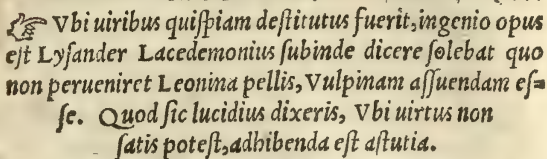 ☞ Vbi uiribus quiſpiam deſtitutus fuerit, ingenio opus
eſt Lyſander Lacedemonius ſubinde dicere ſolebat quo
non perueniret Leonina pellis, Vulpinam aſſuendam eſ=
ſe. Quod ſic lucidius dixeris, Vbi uirtus non
ſatis poteſt, adhibenda eſt aſtutia.